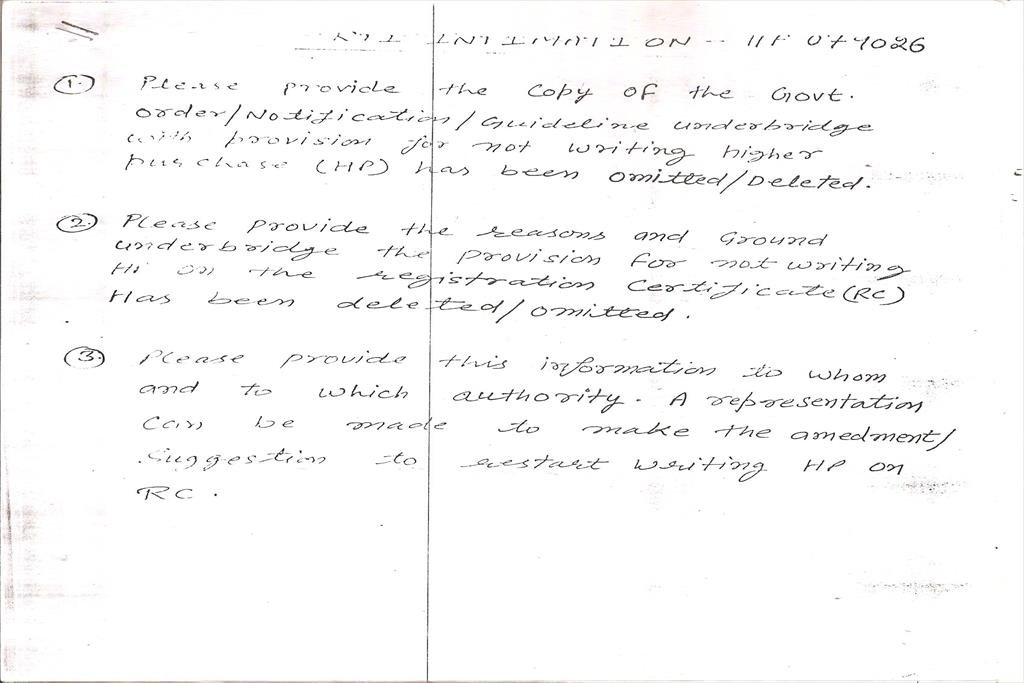 ON -- 11F 074026
1. Please provide the Copy OF the Govt.
order/Notification/Guideline underbridge
with provision for not writing higher
purchase (HP) has been omitted/Deleted.
2. Please provide the reasons and Ground
underbridge the provision for not writing
on the registration Certificate (RC)
Has been deleted/omitted.
3. Please provide this information to whom
and to which authority. A representation
Can be made to make the amedment/
Suggestion to restart writing HP on
RC.